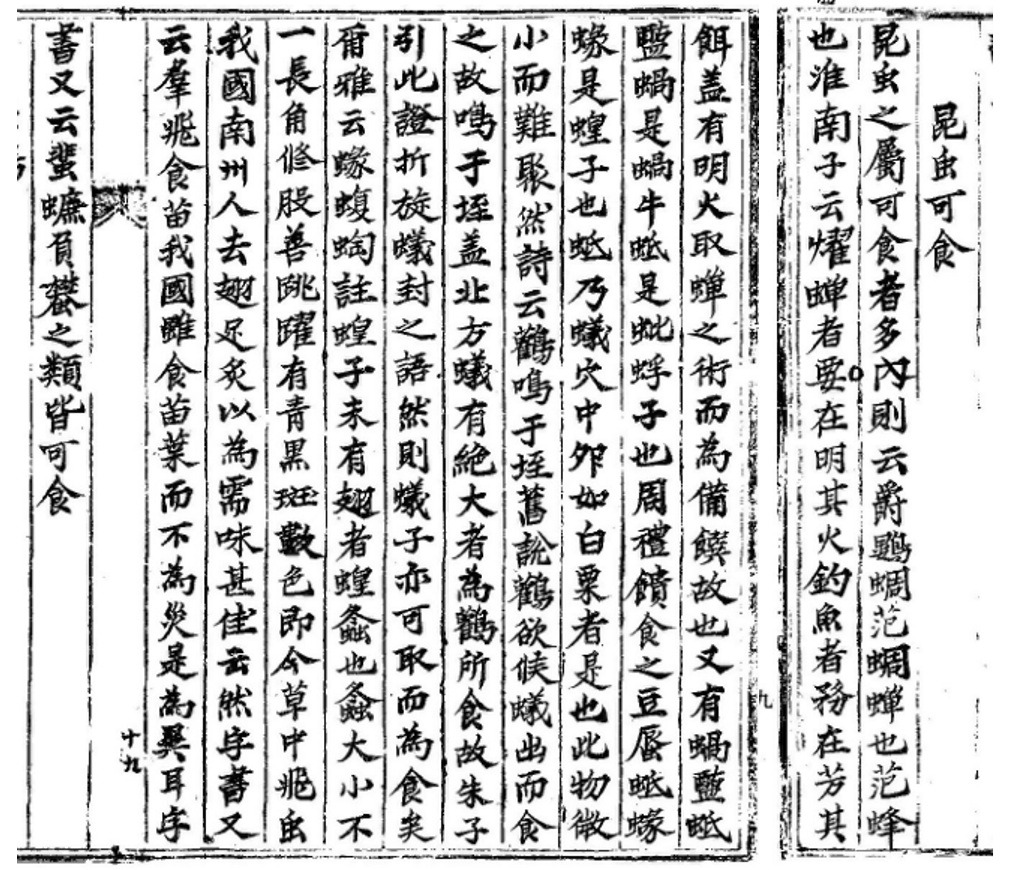 昆虫可食
昆虫之屬可食者多內則云爵鷃蜩范蜩蟬也范蜂
也淮南子云燿蟬者要在明其火釣魚者務在芳其
餌盖有明火取蟬之術而為備饌故也又有蝸蠯蚳
蠯蝸是蝸牛蚳是蚍蜉子也周禮饋食之豆蜃蚳蝝
蝝是蝗子也蚳乃蟻穴中卵如白粟者是也此物微
小而難聚然詩云鸛鳴于垤舊說鸛欲候蟻出而食
之故鳴于垤盖北方蟻有絶大者為鸛所食故朱子
引此證折旋蟻封之語然則蟻子亦可取而為食矣
爾雅云蝝蝮蜪註蝗子未有翅者蝗螽也螽大小不
一長角修股善跳躍有青黑斑數色即今草中飛虫
我國南州人去翅足炙以為需味甚佳云然字書又
云羣飛食苗我國雖食苗葉而不為災是為異耳字
書又云蜚蠊負蠜之類皆可食
十九
九